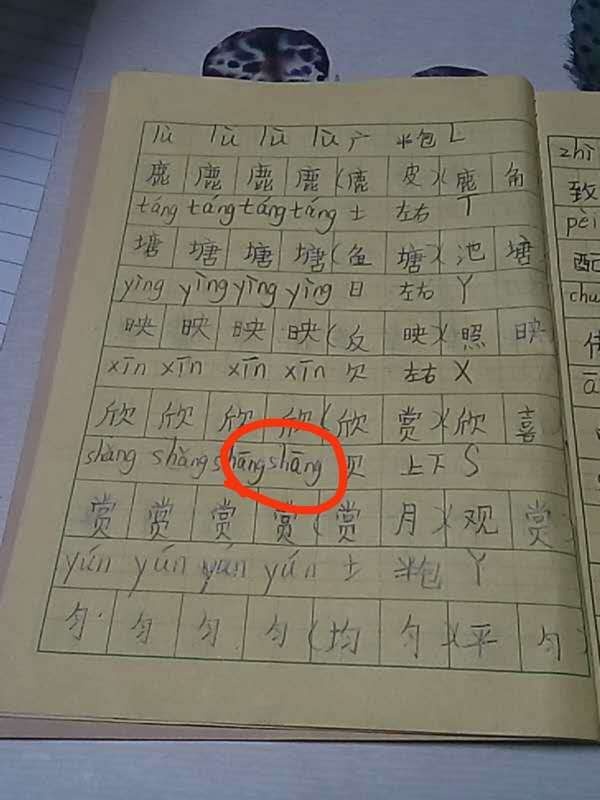 lù lù lù lù 广 半包 L
鹿 鹿 鹿 鹿 (鹿 皮)(鹿 角
táng táng táng táng 土 左右 T
塘 塘 塘 塘 (鱼 塘)(池 塘
yìng yìng yìng yìng 日 左右 Y
映 映 映 映 (反 映)(照 映
xīn xīn xīn xīn 欠 左右 X
欣 欣 欣 欣 (欣 赏)(欣 喜
shǎng shǎng shāng shāng 贝 上下 S
赏 赏 赏 赏 (赏 月)(观 赏
yún yún yún yún 土 半包 Y
匀 匀 匀 匀 (均 匀)(平 匀
zhì
致
pèi
配
chu